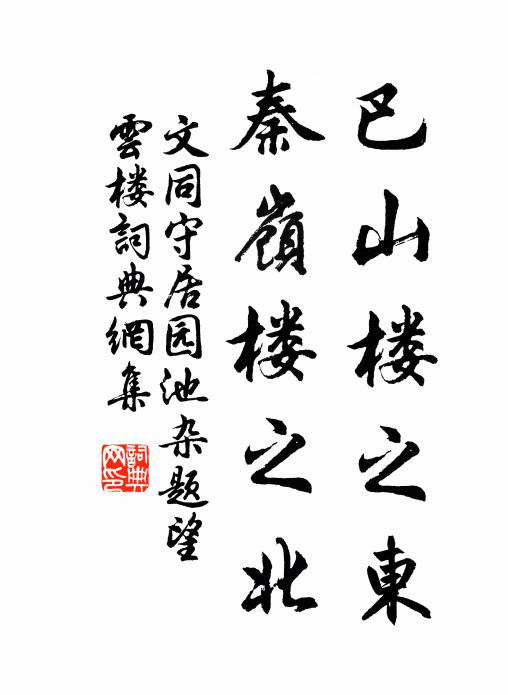 巴山楼之東
秦嶺楼之北
文同守居园池杂题望
雲楼詞典網集
詞典
网印